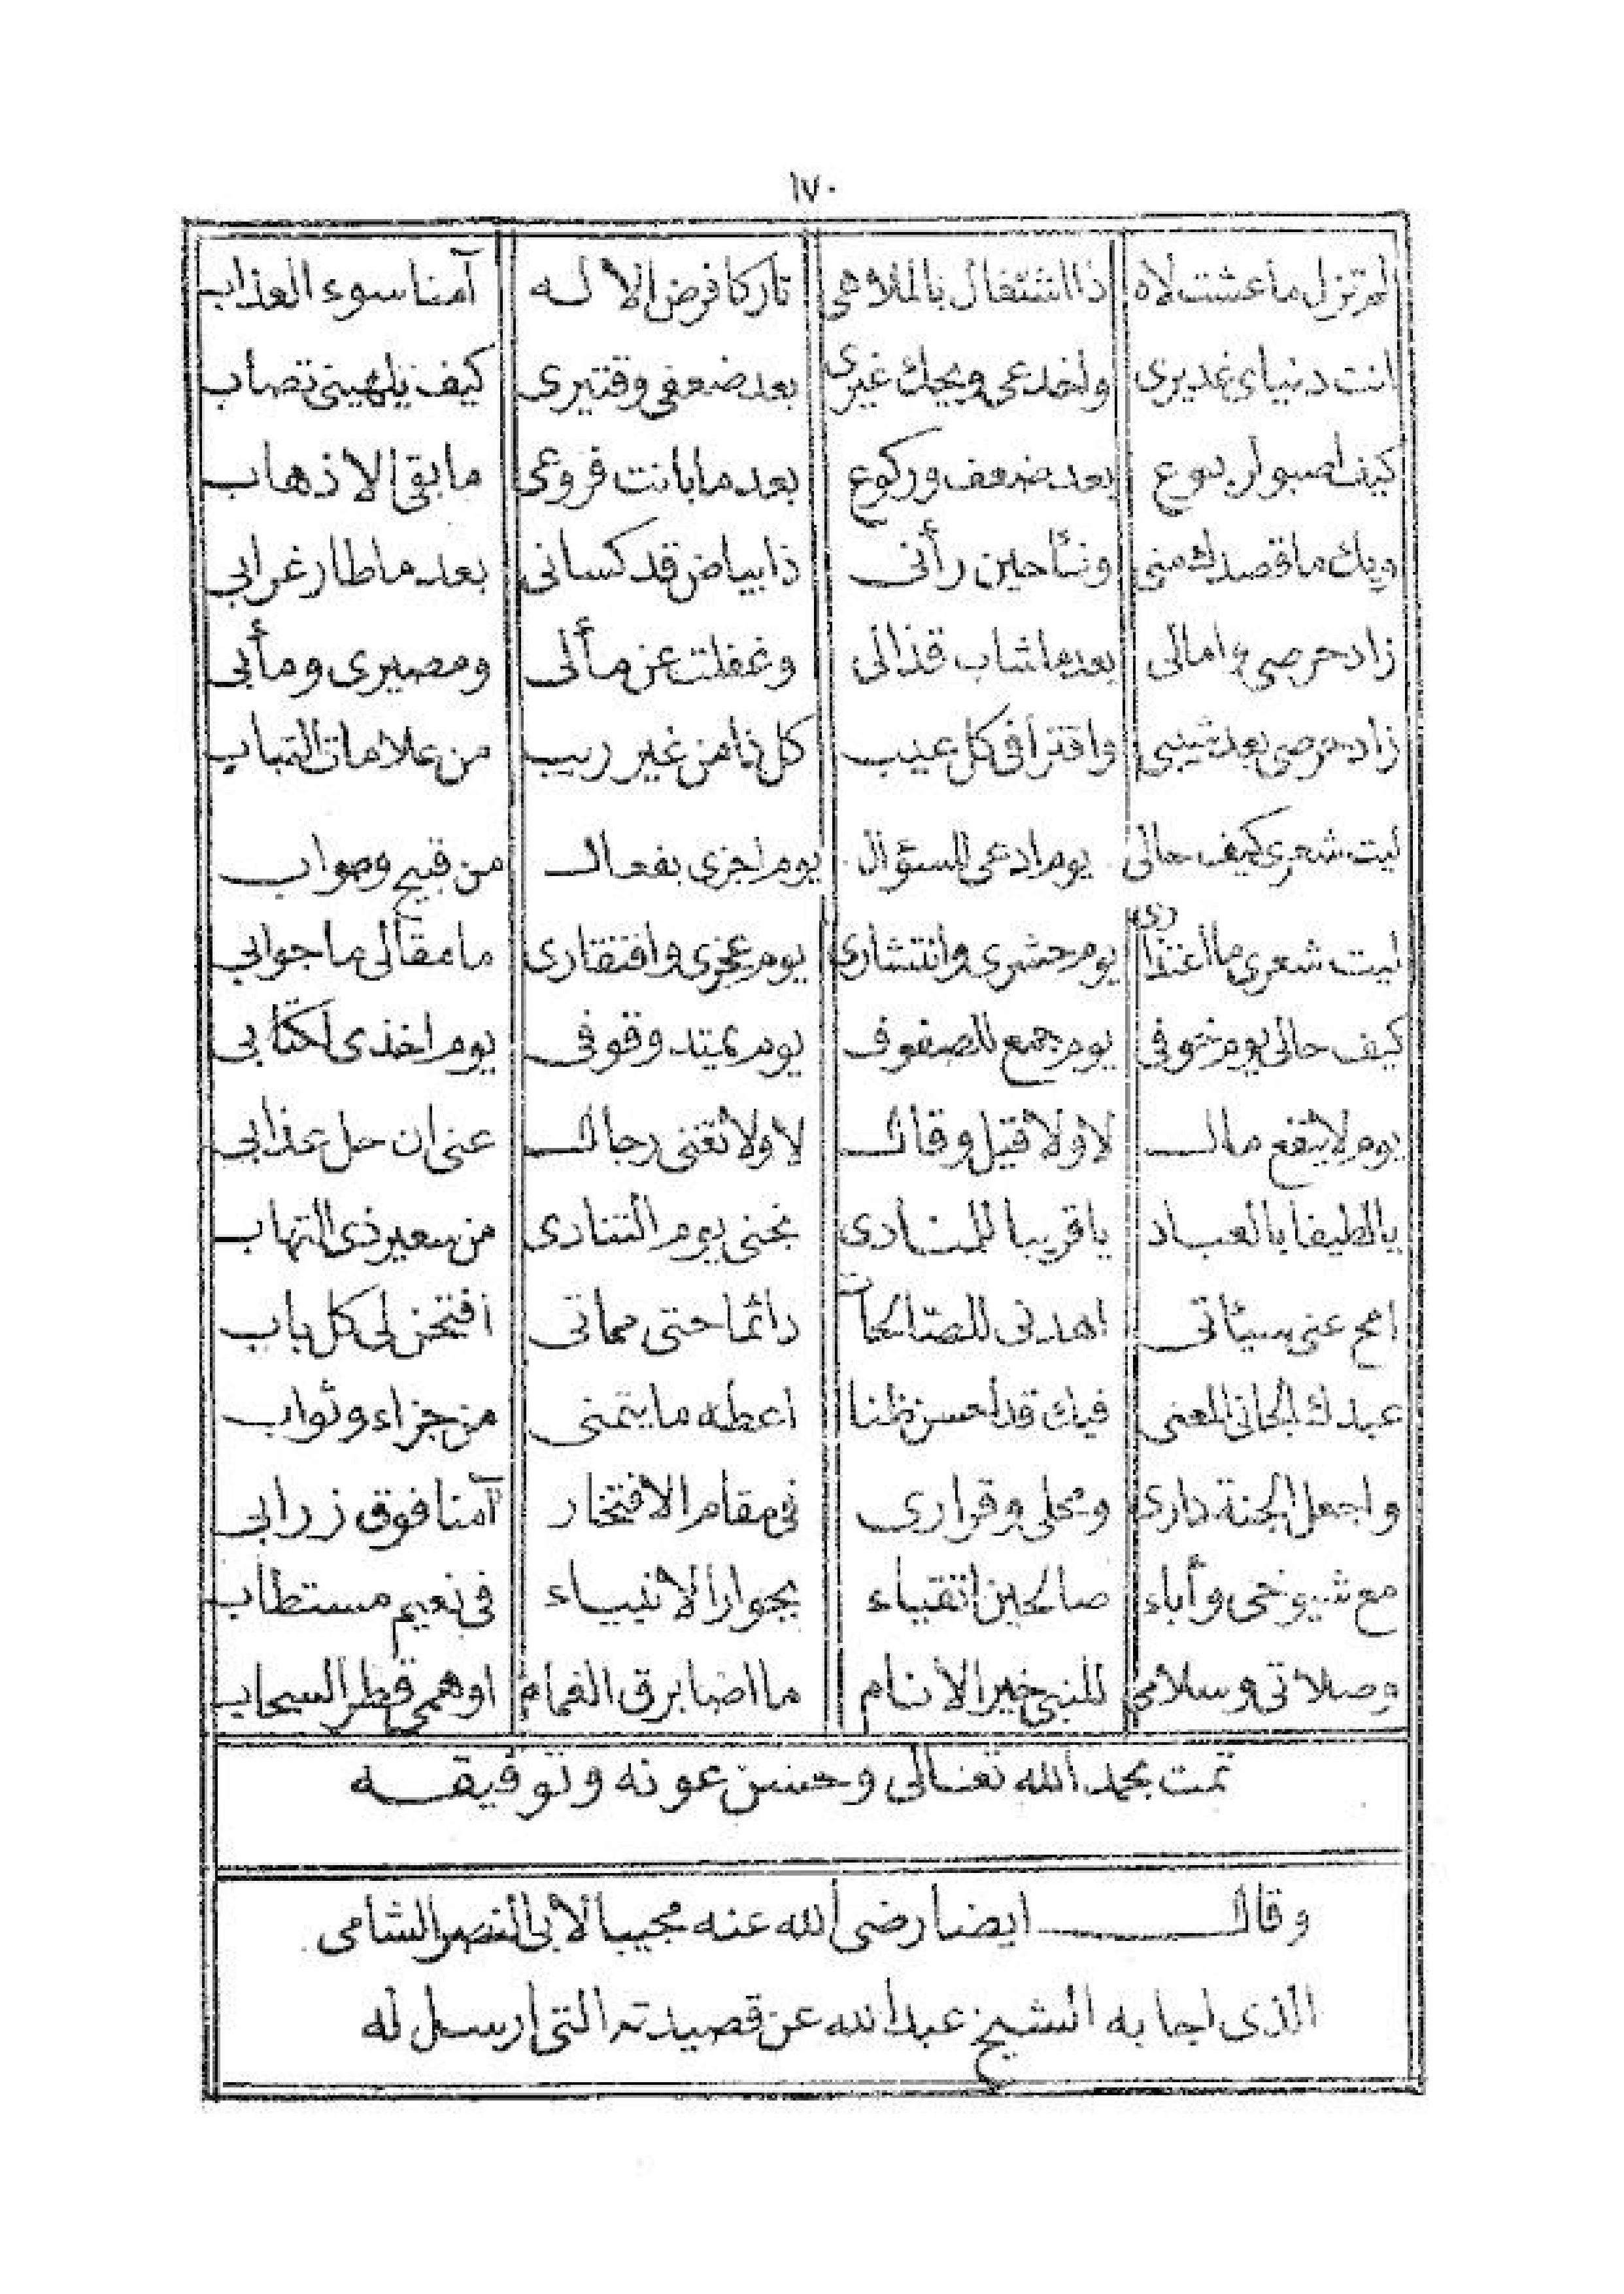 ١٧٠
لم تزل ما عشت لاه ذا اشتغال بالملاهى تاركا فرض الاله آمنا سوء العذاب
انت دنياى غديرى واخدعى ويحك غيرى بعد ضعفى وقتيرى كيف يلهينى تصاب
كيف اصبو لربوع بعد ضعف وركوع بعد ما بانت فروعى ما بقى الا ذهاب
ويك ما قصدك منى حين رأنى ذا بياض قد كسانى بعد ما طار غرابى
زاد حرصى وامالى بعد ما شاب قذالى وغفلت عن مألى ومصيرى ومأبى
زاد حرصى بعد شيبى واقترافى كل عيب كل ذا من غير ريب من علامات التباب
ليت شعرى كيف حالى يوم ادعى للسؤال يوم اجزى بفعال من قبيح وصواب
ليت شعرى ما أعتذارى يوم حشرى وانتشارى يوم عجزى وافتقارى ما مقالى ما جوابى
كيف حالى يوم خوفى يوم جمع للصفوف يوم يمتد وقوفى يوم اخذى لكتابى
يوم لا ينفع مال لا ولا قيل وقال لا ولا تغنى رجال عنى ان حل عذابى
يا لطيفا بالعباد يا قريبا للمنادى نجنى يوم التنادى من سعير ذى التهاب
امح عنى سيئاتى اهدنى للصالحات دائما حتى مماتى افتحن لى كل باب
عبدك الجانى المعنى فيك قد احسن ظنا اعطه ما يتمنى من جزاء وثواب
واجعل الجنة دارى ومحلى وقرارى فى مقام الافتخار آمنا فوق زرابى
مع شيوخى وأباء صالحين اتقياء بجوار الانبياء فى نعيم مستطاب
وصلاتى وسلامى للنبى خير الانام ما اضا برق الغمام اوهمى قطر السحاب
تمت بحمد الله تعالى وحسن عونه وتوفيقه
وقال ايضا رضى الله عنه مجيبا لابى النصر الشامى
الذى اجابه الشيخ عبد الله عن قصيدته التى ارسل له